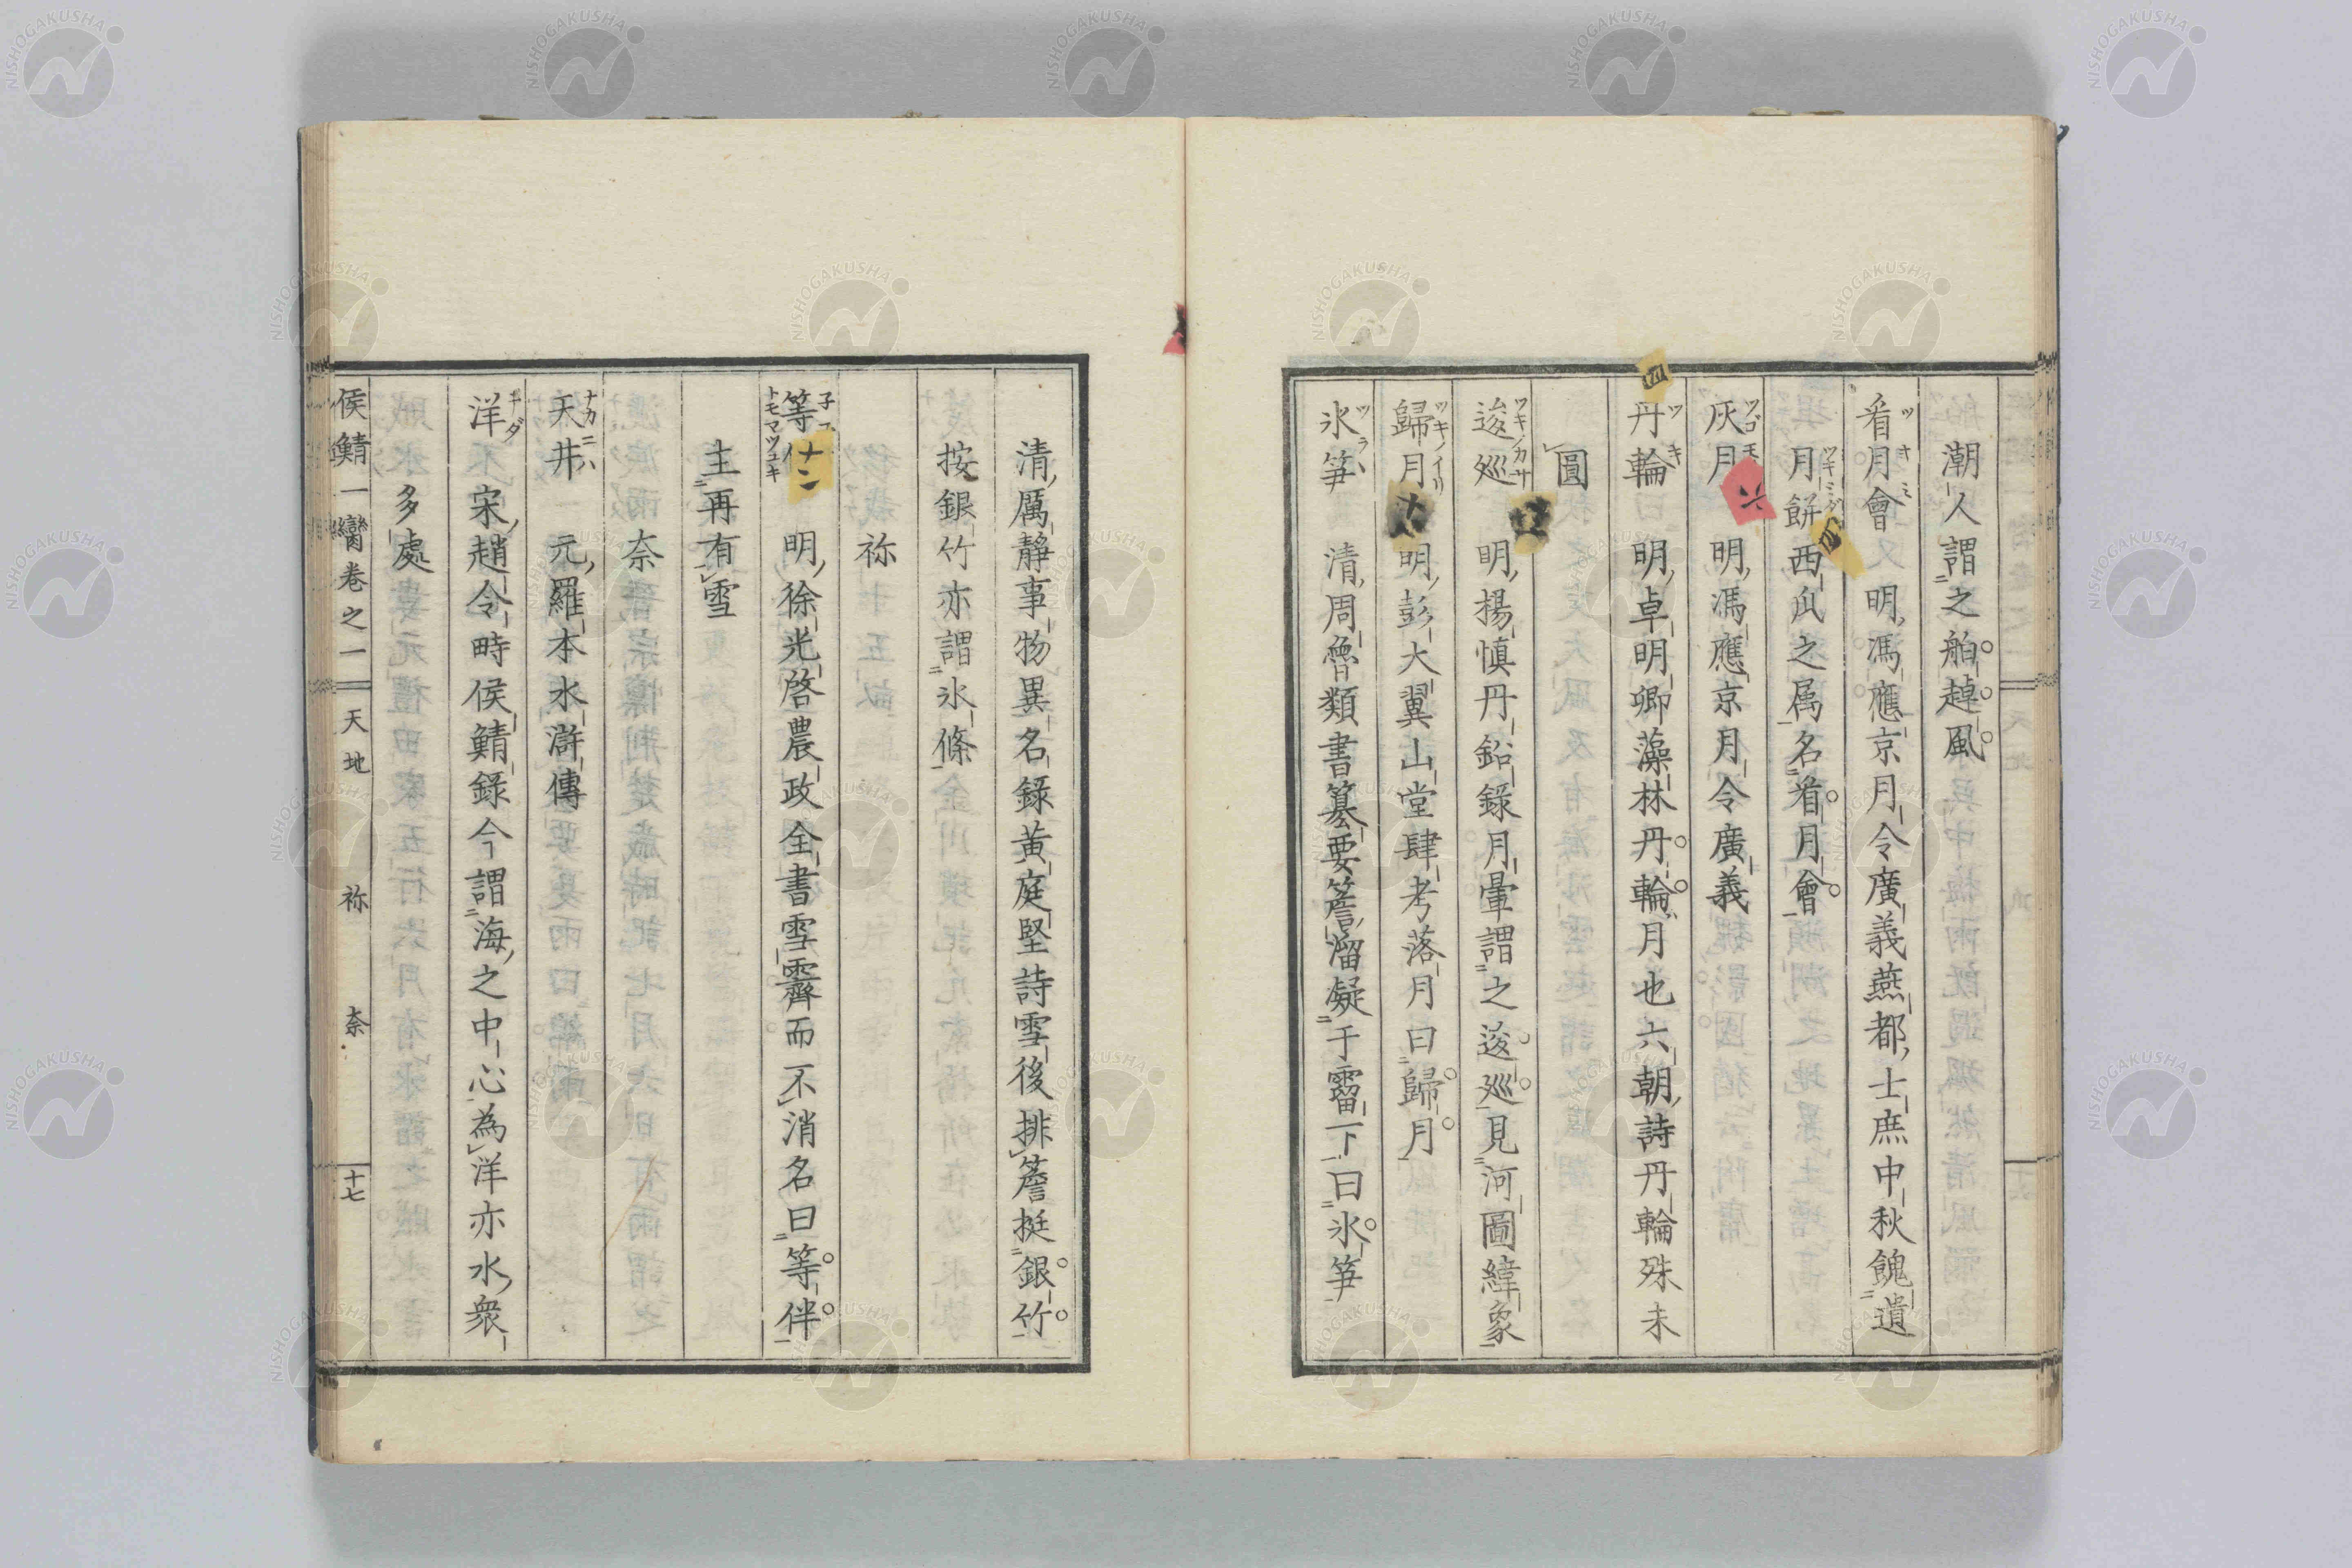 潮人謂之舶趠風
看月會 明馮應京月令廣義燕都士庶中秋餽遺
月餅西瓜之属名看月會
灰月 明馮應京月令廣義
丹輪 明卓明卿藻林丹輪月也六朝詩丹輪殊未
圓
逡廵 明揚慎丹鉛錄月暈謂之逡廵見河圖緯象
歸月 明彭大翼山堂肆考落月曰歸月
氷笋 清周魯類書纂要簷溜凝于霤下曰氷笋
清厲靜事物異名錄黃庭堅詩雪後排簷挺銀竹
按銀竹亦謂氷條
祢
等 明徐光啓農政全書雪霽而不消名曰等伴
主再有雪
奈
天井 元羅本水滸傳
洋 宋趙令畤侯鯖錄今謂海之中心為洋亦水衆
多處
侯鯖一臠卷之一 天地 祢 奈 十七